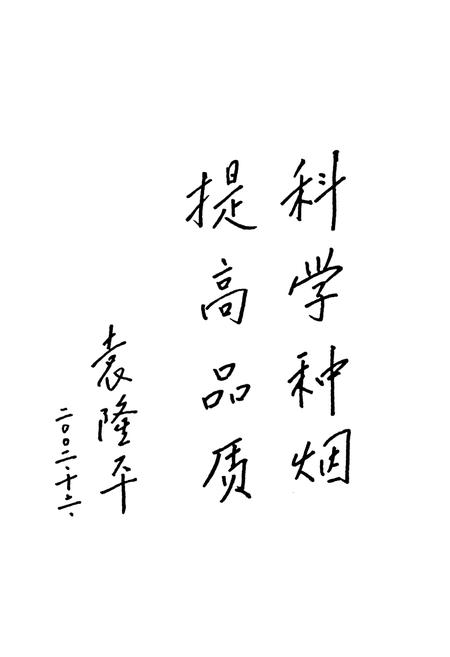 科学种烟
提高品质
袁隆平
二〇〇二、十、六、